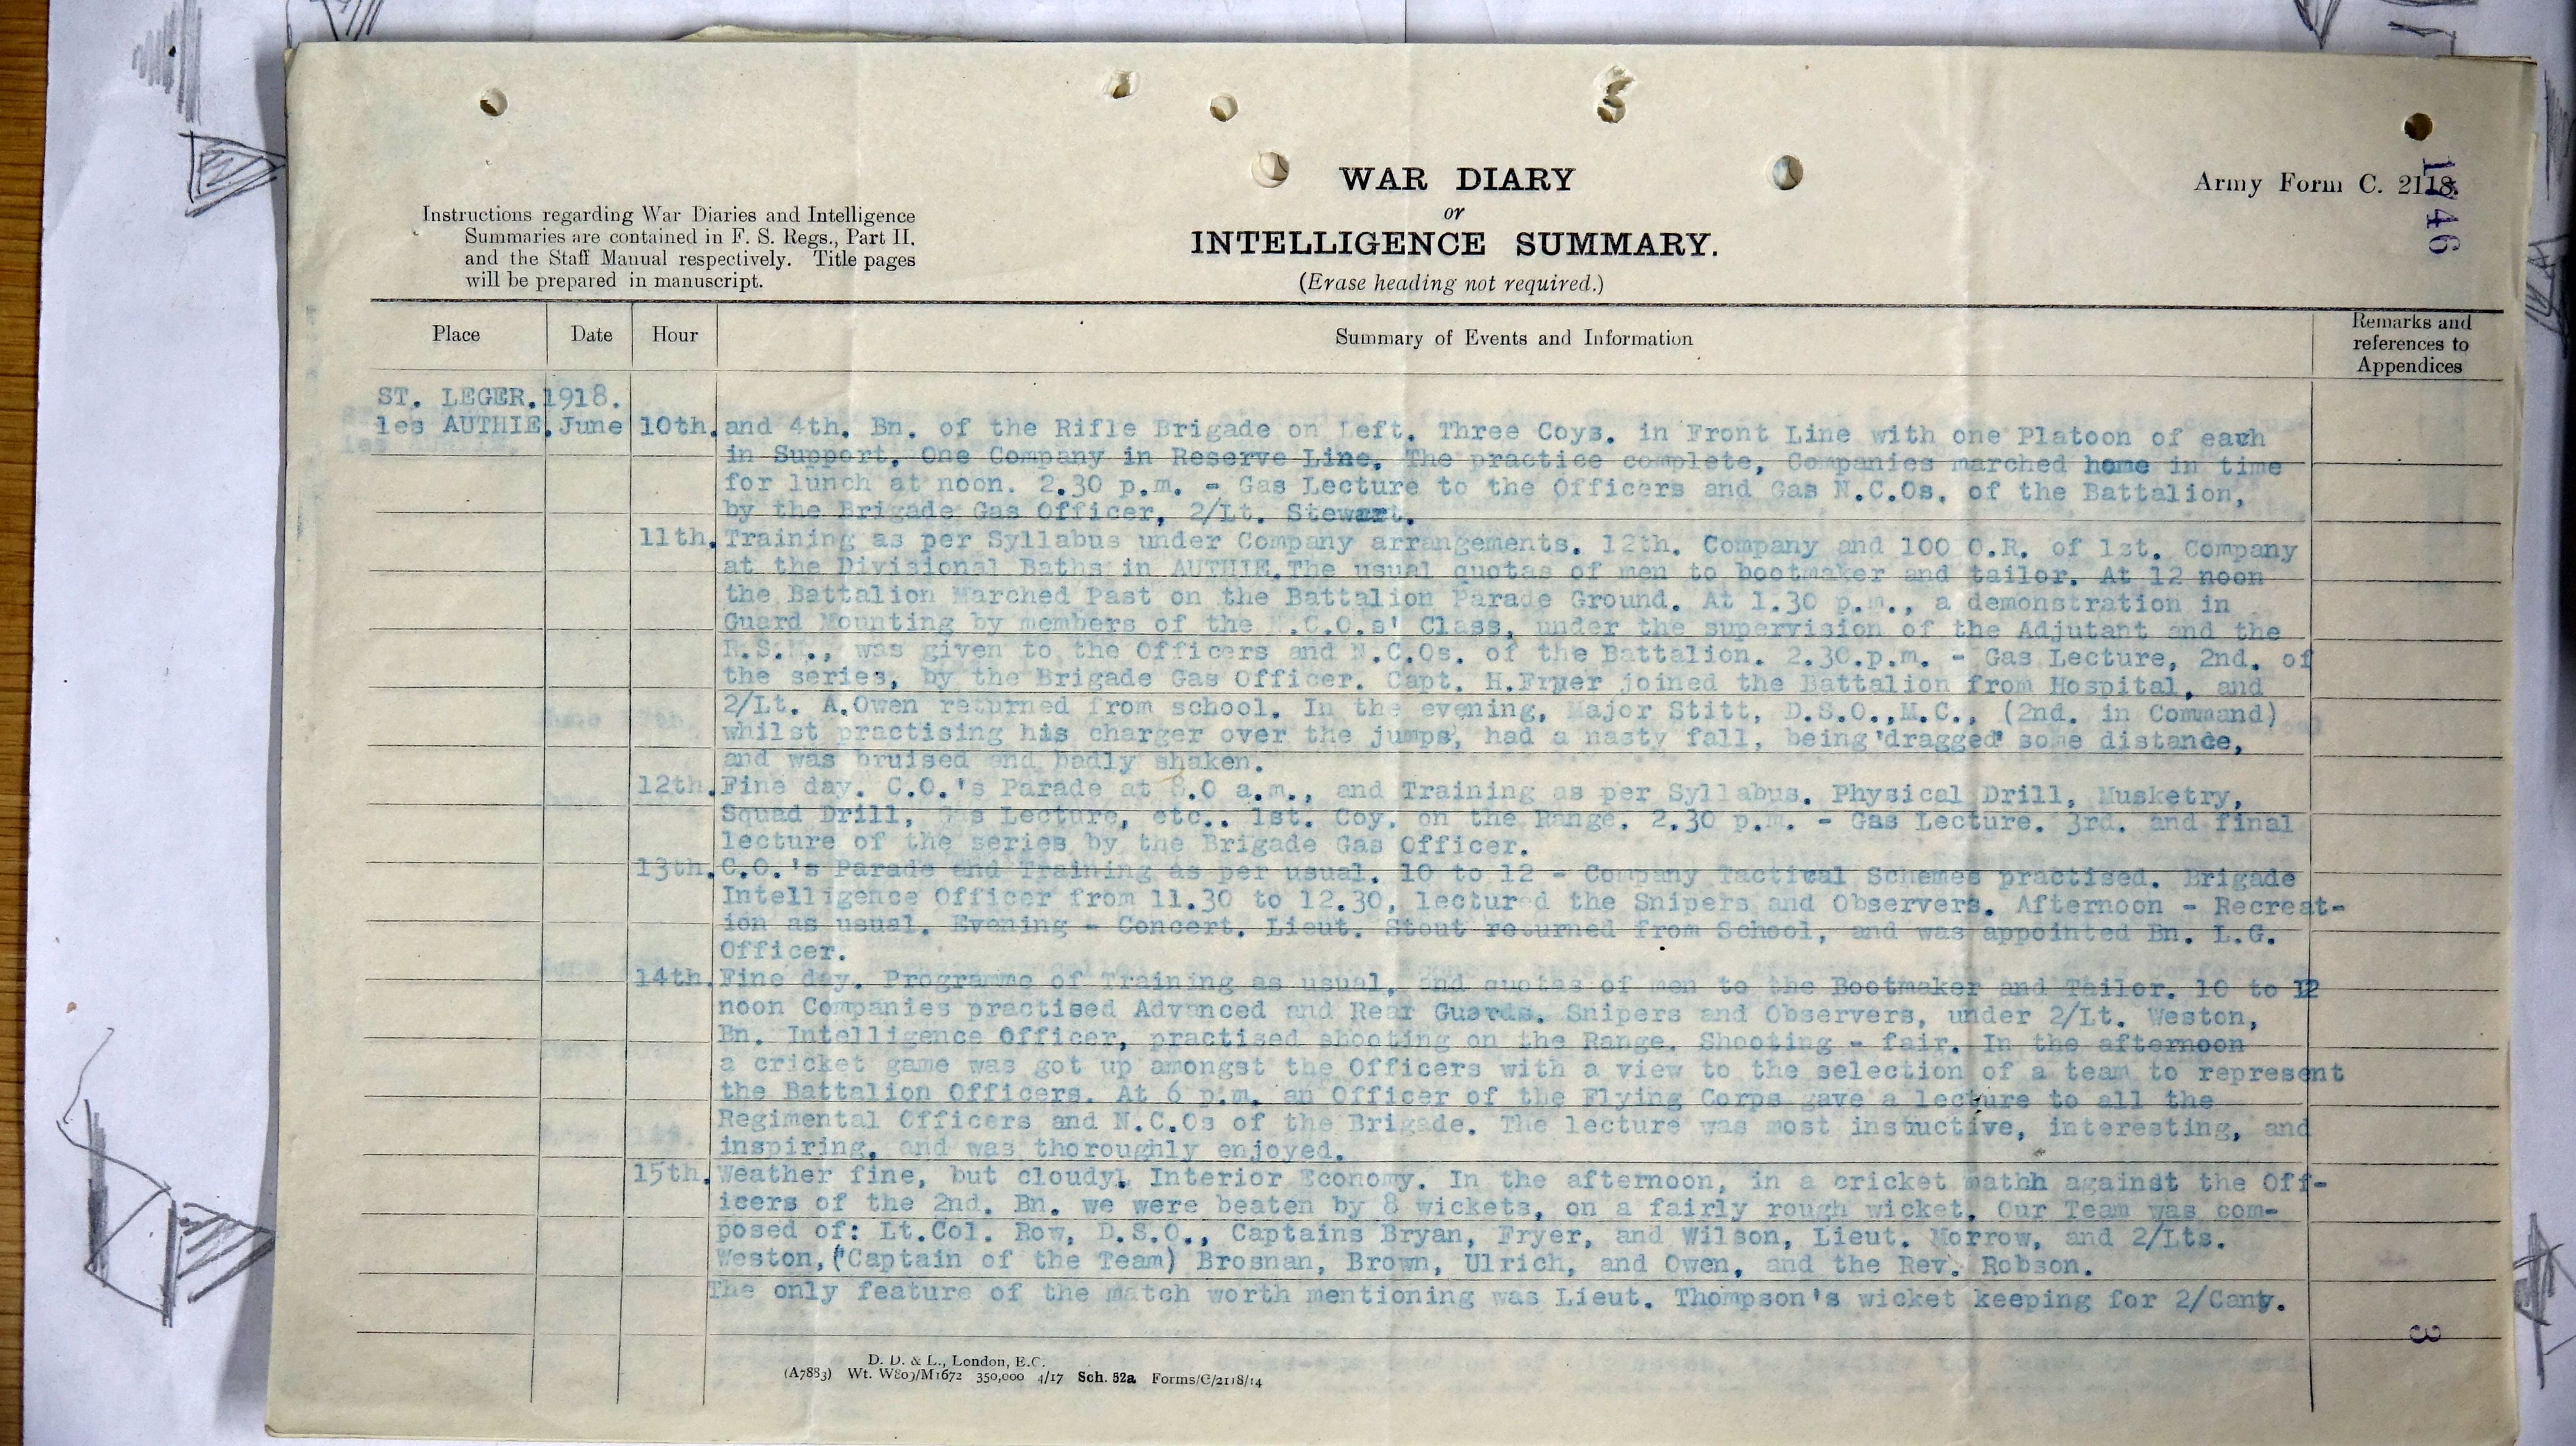 WAR DIARY
or
INTELLIGENCE SUMMARY.
(Erase heading not required.)
Army Form C. 2118.
1746
Instructions regarding War Diaries and Intelligence
Summaries are contained in F. S. Regs., Part II.
and the Staff Manual respectively. Title pages
will be prepared in manuscript.
Place Date Hour Summary of Events and Information Remarks and references to Appendices
ST. LEGER. 1918.
les AUTHIE. June 10th. and 4th. Bn. of the Rifle Brigade on Left. Three Coys. in Front Line with one Platoon of each
in Support. One Company in Reserve Line. The practice complete, Companies marched home in time
for lunch at noon. 2.30 p.m. - Gas Lecture to the Officers and Gas N.C.Os. of the Battalion,
by the Brigade Gas Officer, 2/Lt. Stewart.
11th. Training as per Syllabus under Company arrangements. 12th. Company and 100 O.R. of 1st. Company
at the Divisional Baths in AUTHIE.The usual quotas of men to bootmaker and tailor. At 12 noon
the Battalion Marched Past on the Battalion Parade Ground. At 1.30 p.m., a demonstration in
Guard Mounting by members of the N.C.O.s' Class, under the supervision of the Adjutant and the
R.S.M., was given to the Officers and N.C.Os. of the Battalion. 2.30.p.m. - Gas Lecture, 2nd. of
the series, by the Brigade Gas Officer. Capt. H.Fryer joined the Battalion from Hospital, and
2/Lt. A.Owen returned from school. In the evening, Major Stitt, D.S.O.,M.C., (2nd. in Command)
whilst practising his charger over the jumps, had a nasty fall, being 'dragged' some distance,
and was bruised and badly shaken.
12th. Fine day. C.O.'s Parade at 8.0 a.m., and Training as per Syllabus. Physical Drill, Musketry,
Squad Drill, Gas Lecture, etc.. 1st. Coy. on the Range. 2.30 p.m. - Gas Lecture. 3rd. and final
lecture of the series by the Brigade Gas Officer.
13th. C.O.'s Parade and Training as per usual. 10 to 12 - Company Tactical Schemes practised. Brigade
Intelligence Officer from 11.30 to 12.30, lectured the Snipers and Observers. Afternoon - Recreat-
ion as usual. Evening - Concert. Lieut. Stout returned from School, and was appointed Bn. L.G.
Officer.
14th. Fine day. Programme of Training as usual, and quotas of men to the Bootmaker and Tailor. 10 to 12
noon Companies practised Advanced and Rear Guards. Snipers and Observers, under 2/Lt. Weston,
Bn. Intelligence Officer, practised shooting on the Range. Shooting - fair. In the afternoon
a cricket game was got up amongst the Officers with a view to the selection of a team to represent
the Battalion Officers. At 6 p.m. an Officer of the Flying Corps gave a lecture to all the
Regimental Officers and N.C.Os of the Brigade. The lecture was most instuctive, interesting, and
inspiring, and was thoroughly enjoyed.
15th. Weather fine, but cloudy. Interior Economy. In the afternoon, in a cricket mathh against the Off-
icers of the 2nd. Bn. we were beaten by 8 wickets, on a fairly rough wicket. Our Team was com-
posed of: Lt.Col. Row, D.S.O., Captains Bryan, Fryer, and Wilson, Lieut. Morrow, and 2/Lts.
Weston,(Captain of the Team) Brosnan, Brown, Ulrich, and Owen, and the Rev. Robson.
The only feature of the match worth mentioning was Lieut. Thompson's wicket keeping for 2/Canty.
3
D. D. & L., London, E.C.
(A7883) Wt. W809/M1672 350,000 4/17 Sch. 52a Forms/C/2118/14